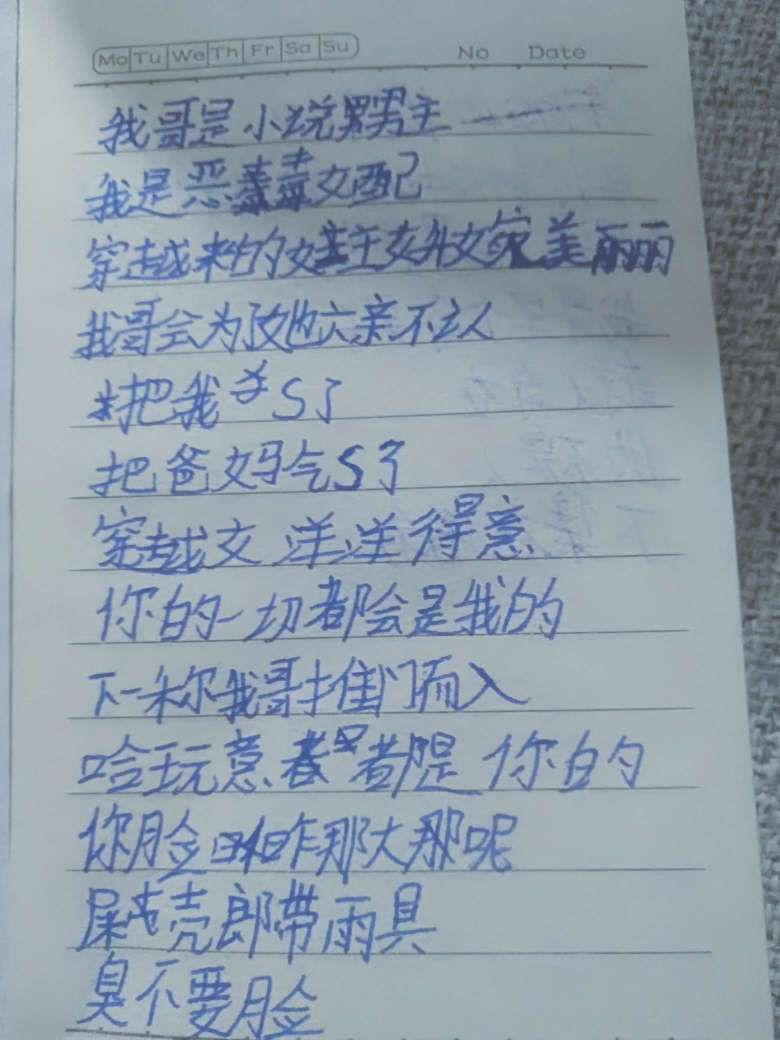 Mo Tu We Th Fr Sa Su No Date
我哥是小说男主
我是恶毒女配
穿越来的女主女扮女装美丽
我哥会为了她六亲不认
把我杀S了
把爸妈气S了
穿越女洋洋得意
你的一切都会是我的
下一秒我哥推门而入
啥玩意都是你的
你脸咋那大那呢
屎壳郎带雨具
臭不要脸